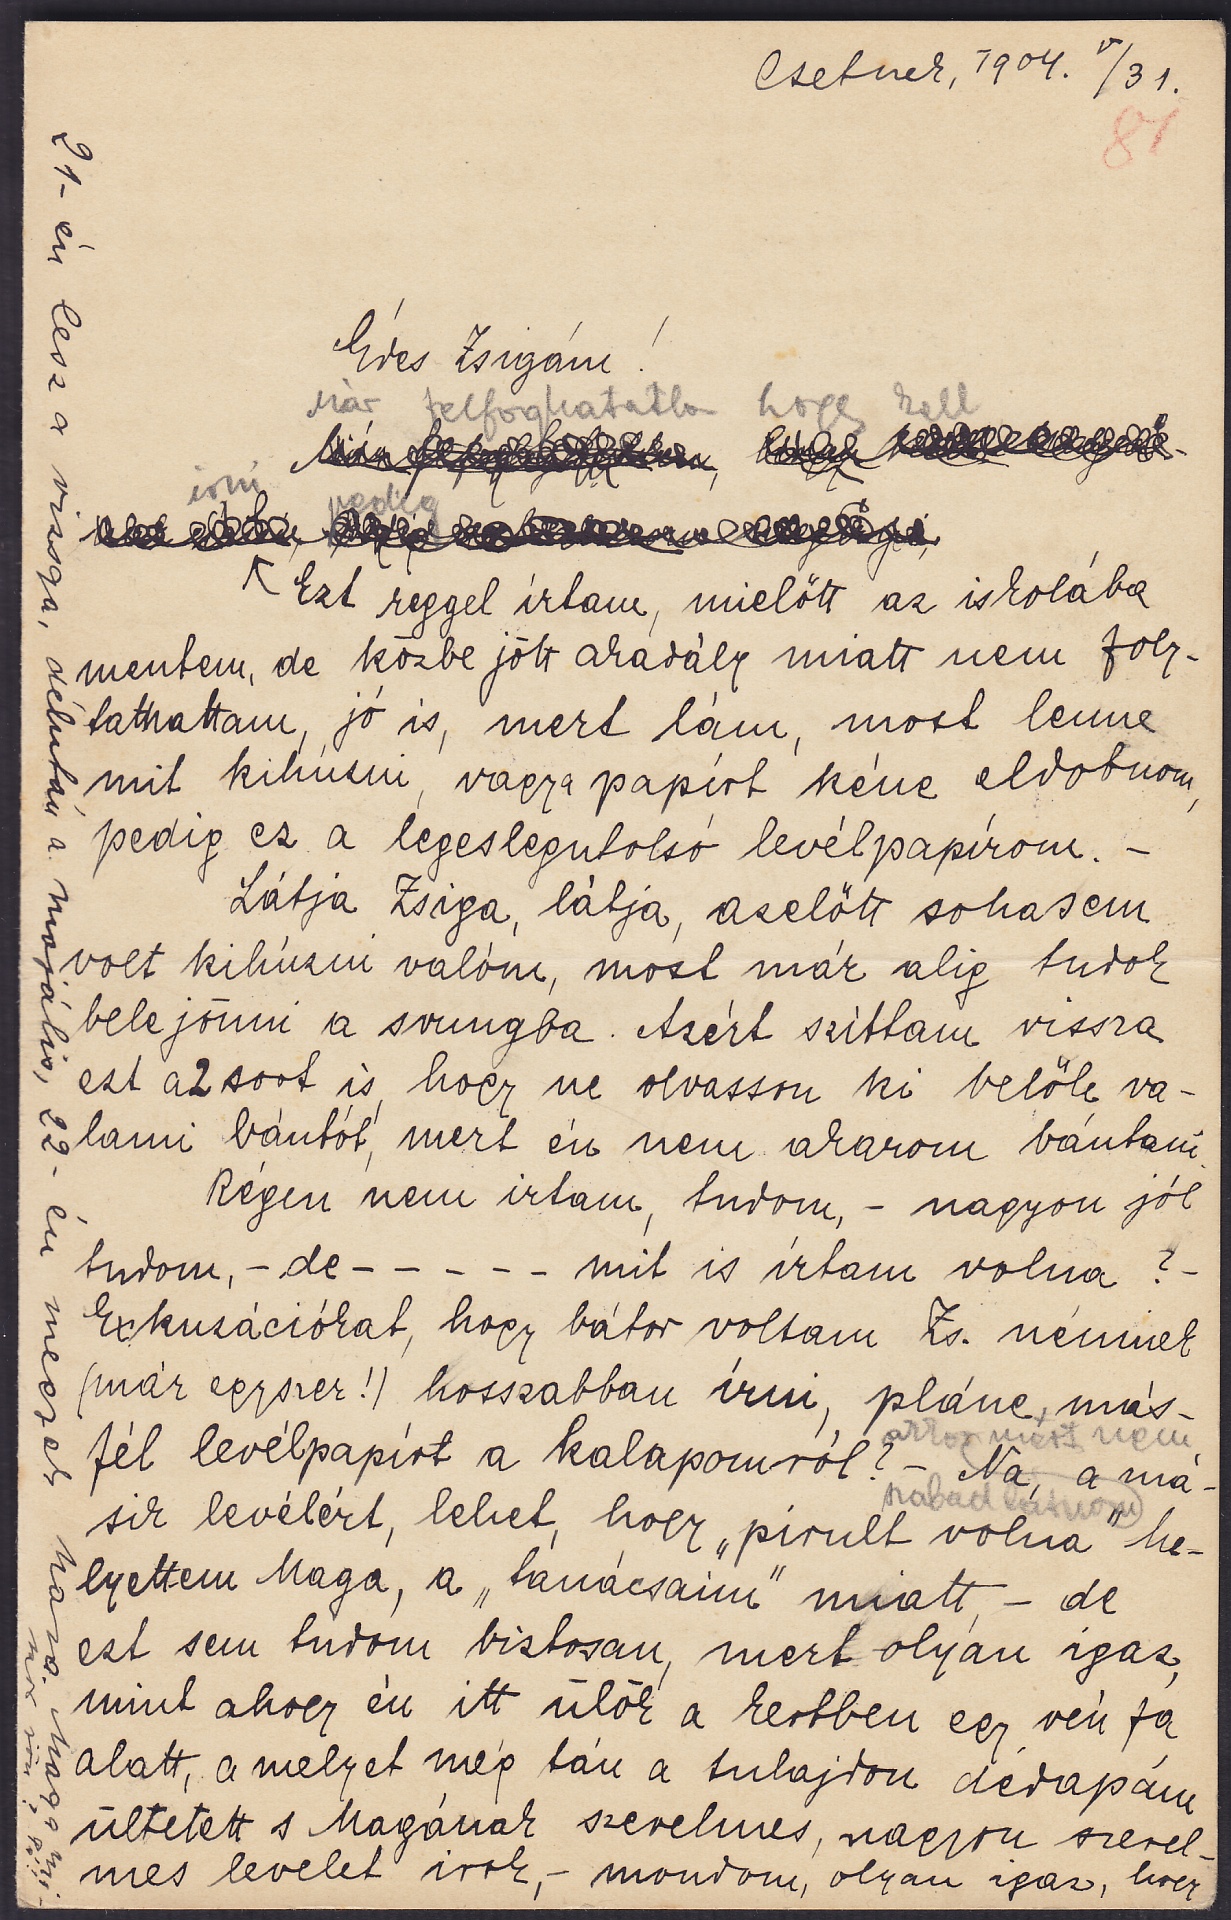 Csetnek, 1904. V/31.
81
Édes Zsigám!
Már felfoghatatlan hogy kell
irni pedig
Ezt reggel írtam, mielőtt az iskolába
mentem, de közbe jött akadály miatt nem foly-
tathattam, jó is, mert lám, most lenne
mit kihúzni, vagy a papírt kéne eldobnom,
pedig ez a legeslegutolsó levélpapírom. –
Látja Zsiga, látja, azelőtt sohasem
volt kihúzni valóm, most már alig tudok
bele jönni a svungba. Azért szíttam vissza
ezt a 2 sort is, hogy ne olvasson ki belőle va-
lami bántót, mert én nem akarom bántani.
Régen nem irtam, tudom, – nagyon jól
tudom, – de – – – – – mit is írtam volna? –
Exkuzációkat, hogy bátor voltam Zs. néninek
(már egyszer!) hosszabban írni, pláne, más-
fél levélpapírt a kalapomról? – Na, a má-
akkor miért nem
szabad
sik levélért, lehet, hogy „pirult volna" he-
lyettem Maga, a „tanácsaim" miatt, – de
ezt sem tudom biztosan, mert olyan igaz,
mint ahogy én itt ülök a kertben egy vén fa
alatt, a melyet még tán a tulajdon dédapám
ültetett s Magának szerelmes, nagyon szerel-
mes levelet irok, – mondom, olyan igaz, hogy
21-én lesz a vizsga, délután a majális, 22-én megyek haza. Maga